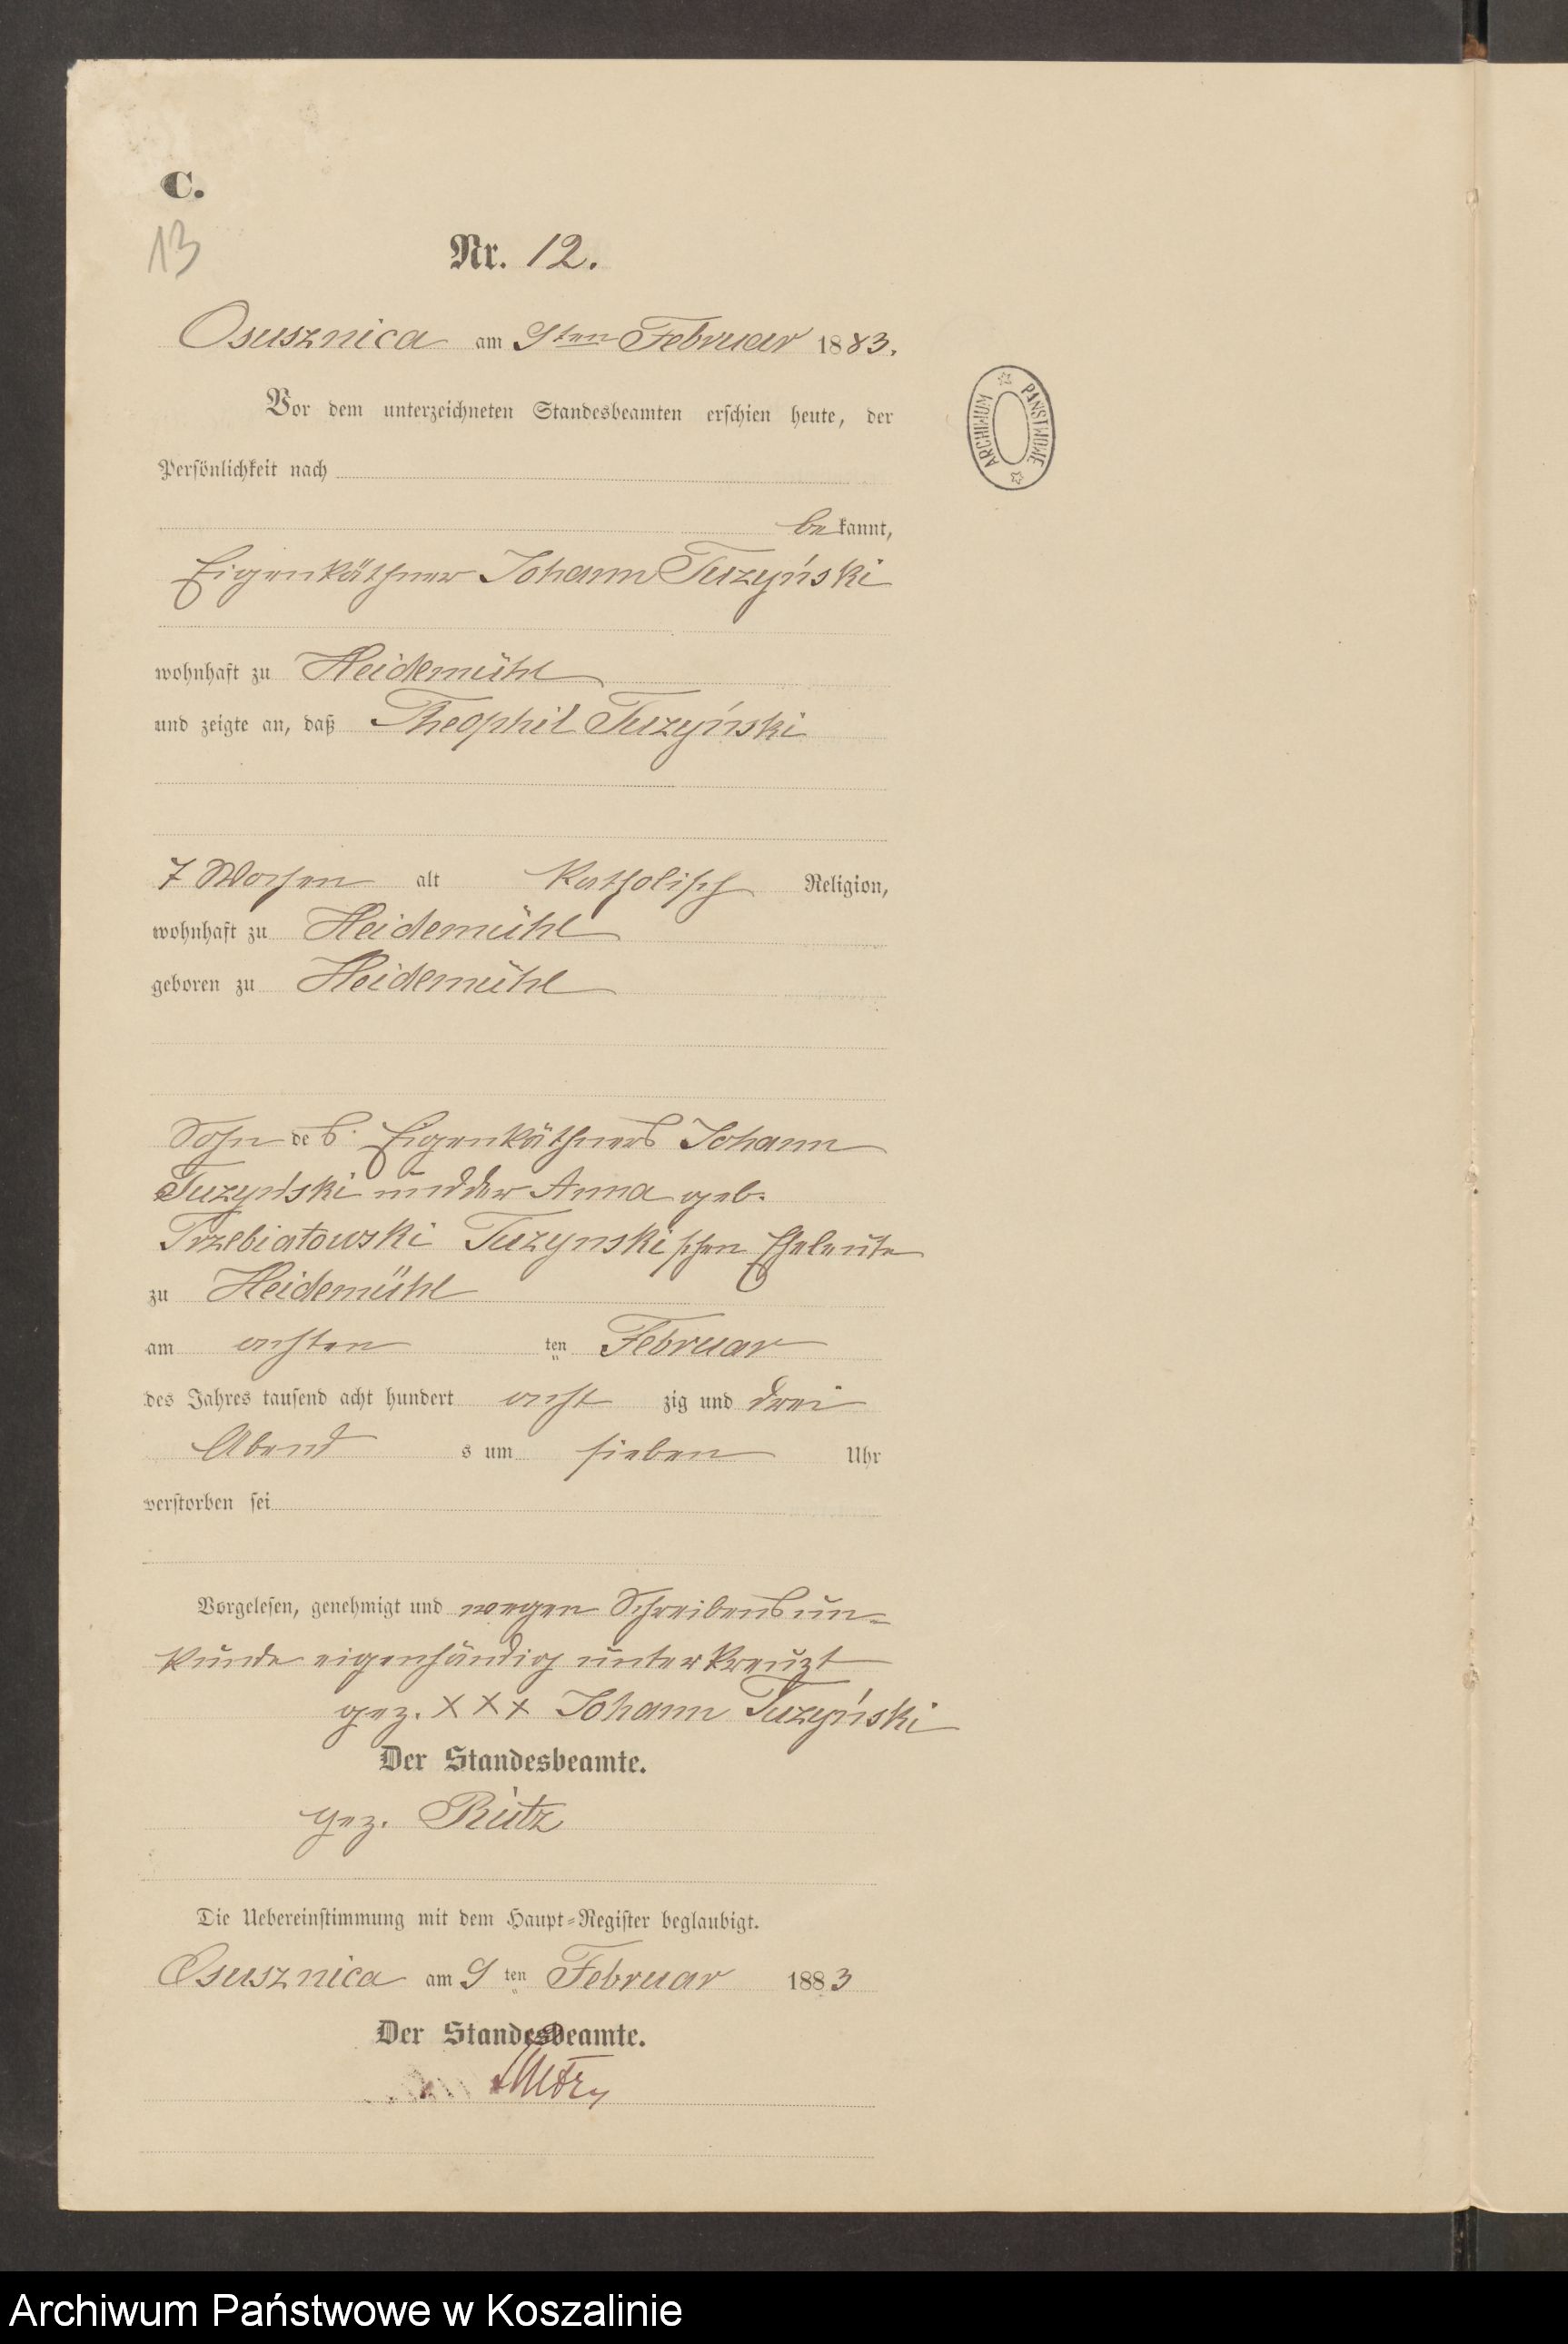 C.
13
Nr. 12.
Osusznica am 9ten Februar 1883.
Vor dem unterzeichneten Standesbeamten erschien heute, der
Persönlichkeit nach
bekannt,
Eigenkäthner Johann Tuzyński
wohnhaft zu Heidemühl
und zeigte an, daß Theophil Tuzyński
7 Wochen alt Katholisch Religion,
wohnhaft zu Heidemühl
geboren zu Heidemühl
Sohn des Eigenkäthners Johann
Tuzyński und der Anna geb.
Trzebiatowski Tuzynskischen Eheleute
zu Heidemühl
am achten ten Februar
des Jahres tausend acht hundert acht zig und drei
Abend s um sieben Uhr
verstorben sei
Vorgelesen, genehmigt und wegen Schreibensun-
kunde eigenhändig unterkreuzt
gez. XXX Johann Tuzyński
Der Standesbeamte.
gez. Rütz
Die Uebereinstimmung mit dem Haupt-Register beglaubigt.
Osusznica am 9 ten Februar 1883
Der Standesbeamte.
ARCHIWUM PAŃSTWOWE
Archiwum Państwowe w Koszalinie